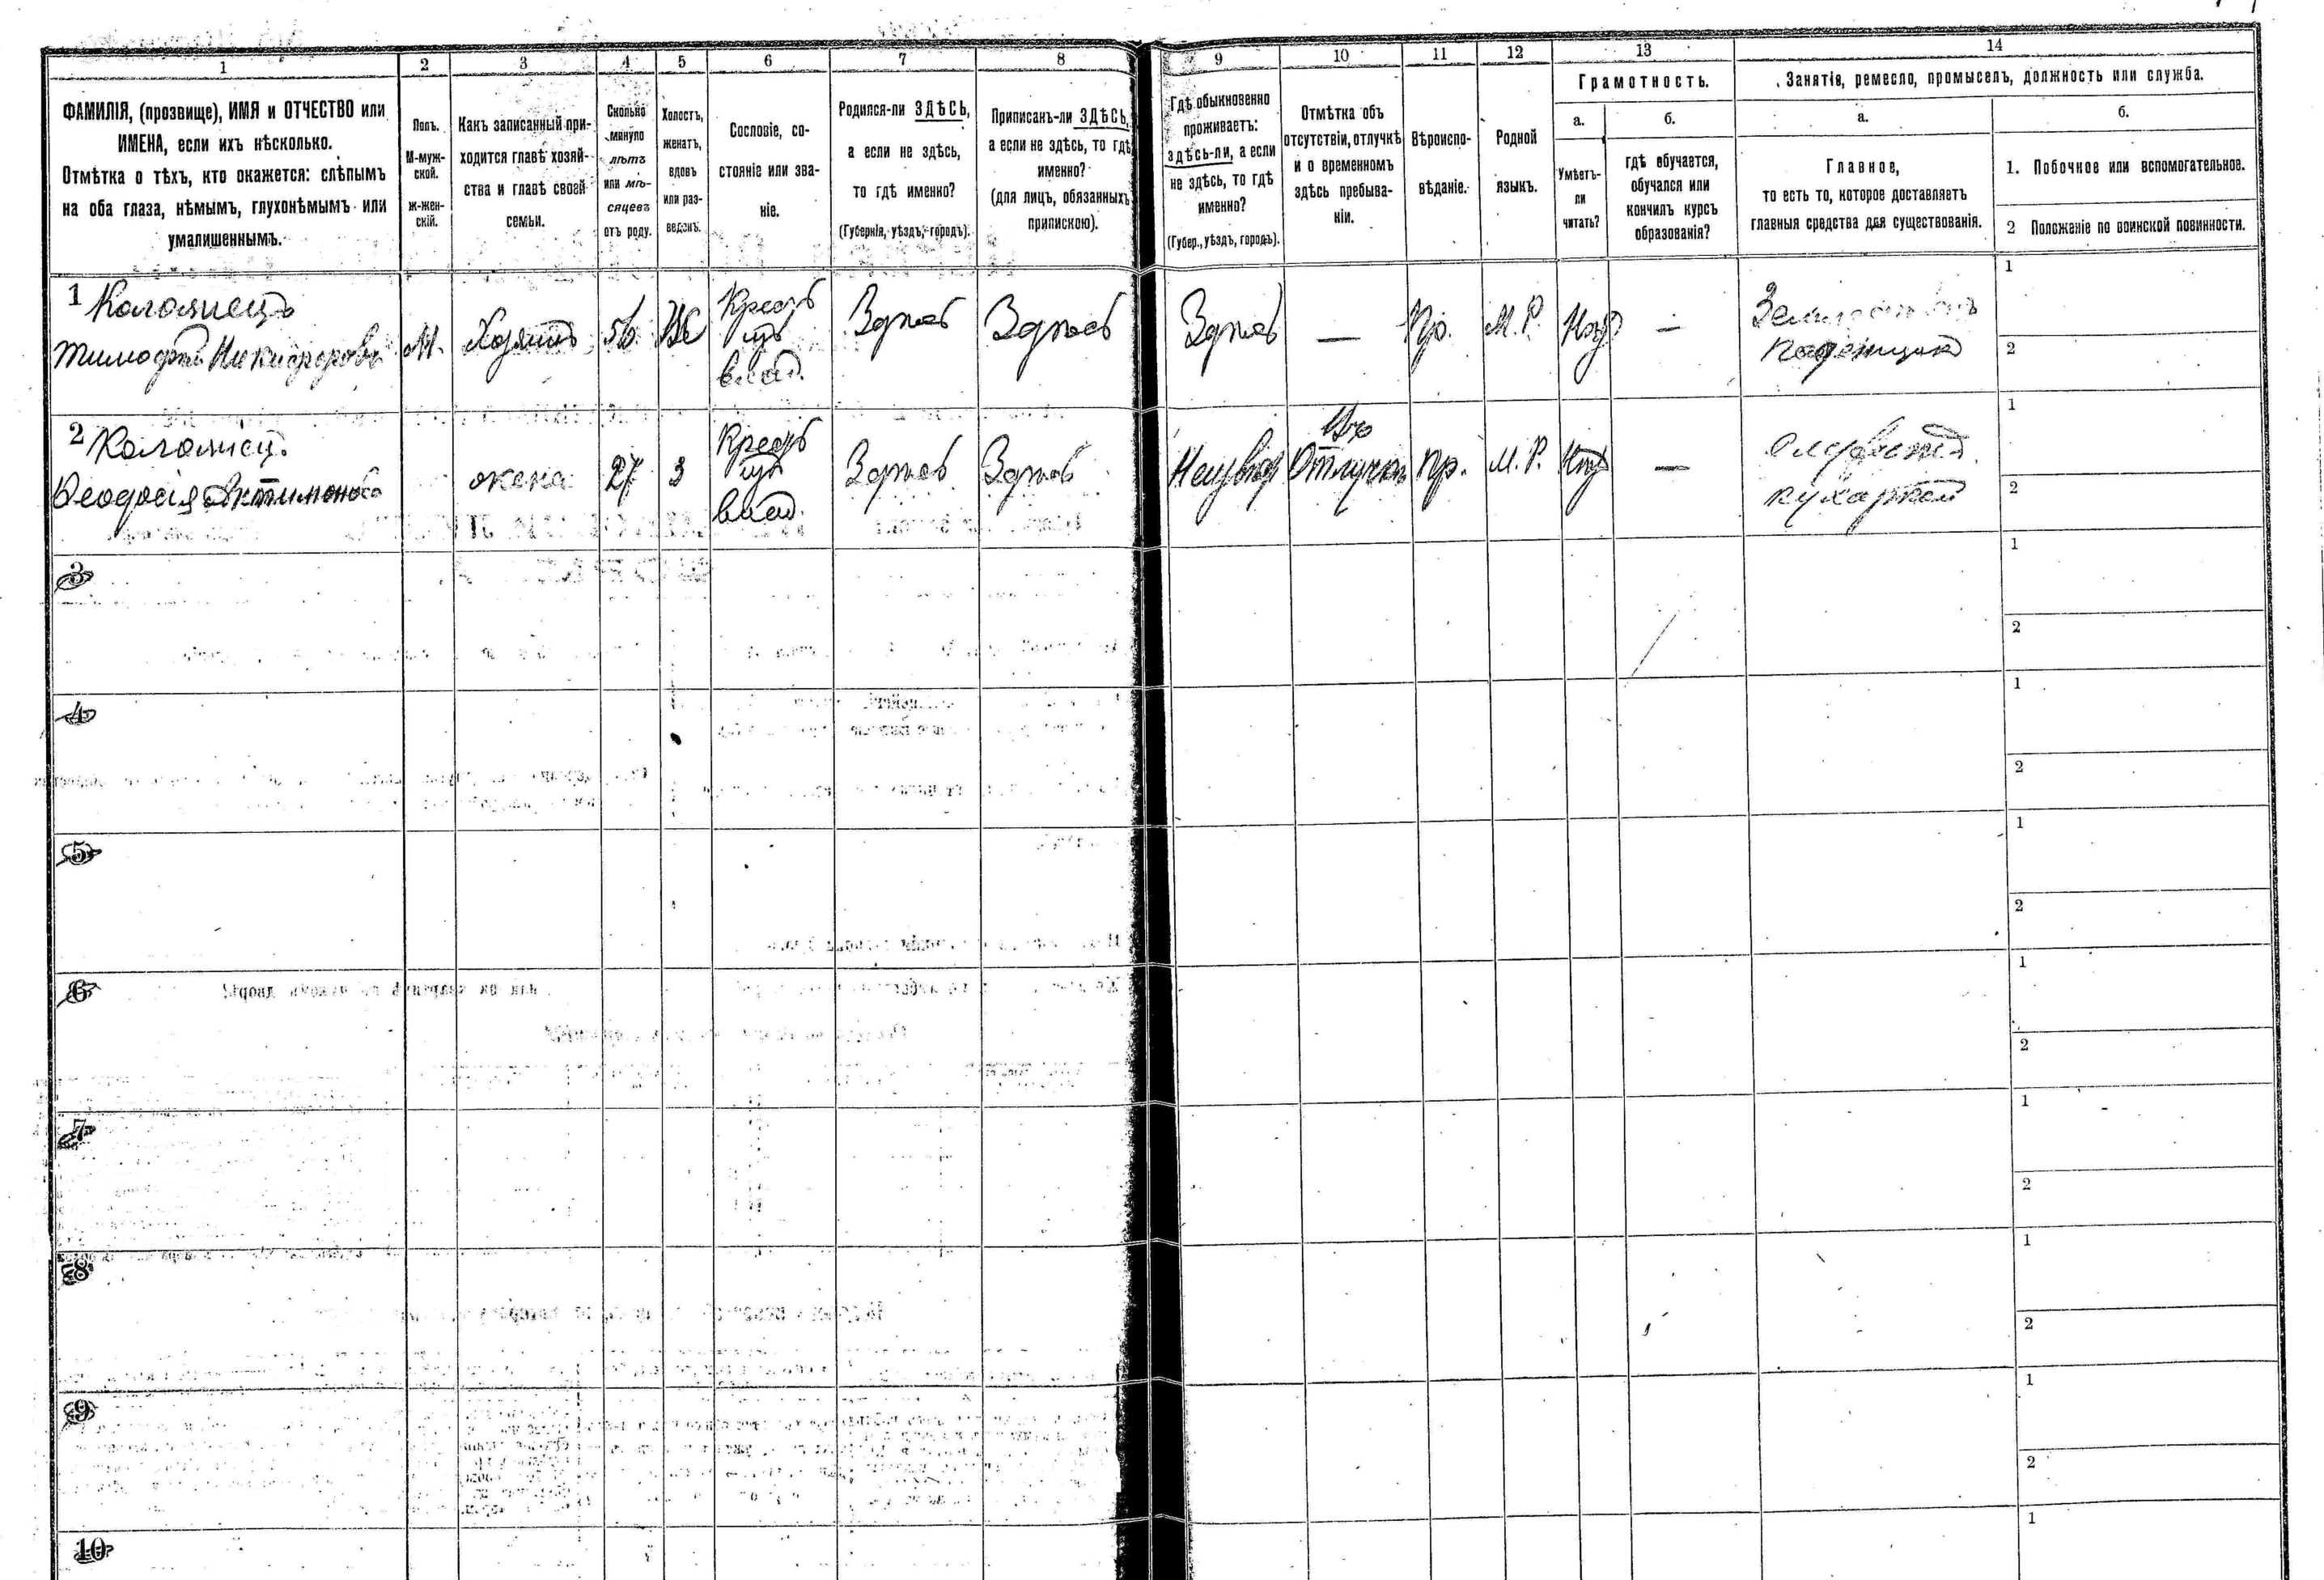 1
2
3
4
5
6
7
8
9
10
11
12
13
14
ФАМИЛІЯ, (прозвище), ИМЯ и ОТЧЕСТВО или
ИМЕНА, если ихъ нѣсколько.
Отмѣтка о тѣхъ, кто окажется: слѣпымъ
на оба глаза, нѣмымъ, глухонѣмымъ или
умалишеннымъ.
Полъ.
М-муж-
ской.
ж-жен-
скій.
Какъ записанный при-
ходится главѣ хозяй-
ства и главѣ своей
семьи.
Сколько
минуло
лѣтъ
или мѣ-
сяцевъ
отъ роду.
Холостъ,
женатъ,
вдовъ
или раз-
веденъ.
Сословіе, со-
стояніе или зва-
ніе.
Родился-ли ЗДѢСЬ,
а если не здѣсь,
то гдѣ именно?
(Губернія, уѣздъ, городъ).
Приписанъ-ли ЗДѢСЬ,
а если не здѣсь, то гдѣ
именно?
(для лицъ, обязанныхъ
припискою).
Гдѣ обыкновенно
проживаетъ:
здѣсь-ли, а если
не здѣсь, то гдѣ
именно?
(Губер., уѣздъ, городъ).
Отмѣтка объ
отсутствіи, отлучкѣ
и о временномъ
здѣсь пребыва-
ніи.
Вѣроиспо-
вѣданіе.
Родной
языкъ.
Грамотность.
а.
Умѣетъ-
ли
читать?
б.
гдѣ обучается,
обучался или
кончилъ курсъ
образованія?
Занятіе, ремесло, промыселъ, должность или служба.
а.
Главное,
то есть то, которое доставляетъ
главныя средства для существованія.
б.
1. Побочное или вспомогательное.
2 Положеніе по воинской повинности.
1 Коломіецъ
Тимофей Никифоровъ
М.
Хозяинъ
56
Ж
Крест
изъ
влад.
Здѣсь
Здѣсь
Здѣсь
—
Пр.
М. Р.
Нѣт
—
1
2
2 Коломіец.
Феодосія
жена
27
З
Крест
изъ
влад.
Здѣсь
Здѣсь
Отлучкѣ
Пр.
М. Р.
Нѣт
—
кухаркой
1
2
3
1
2
4
1
2
5
1
2
6
1
2
7
1
2
8
1
2
9
1
2
10
1